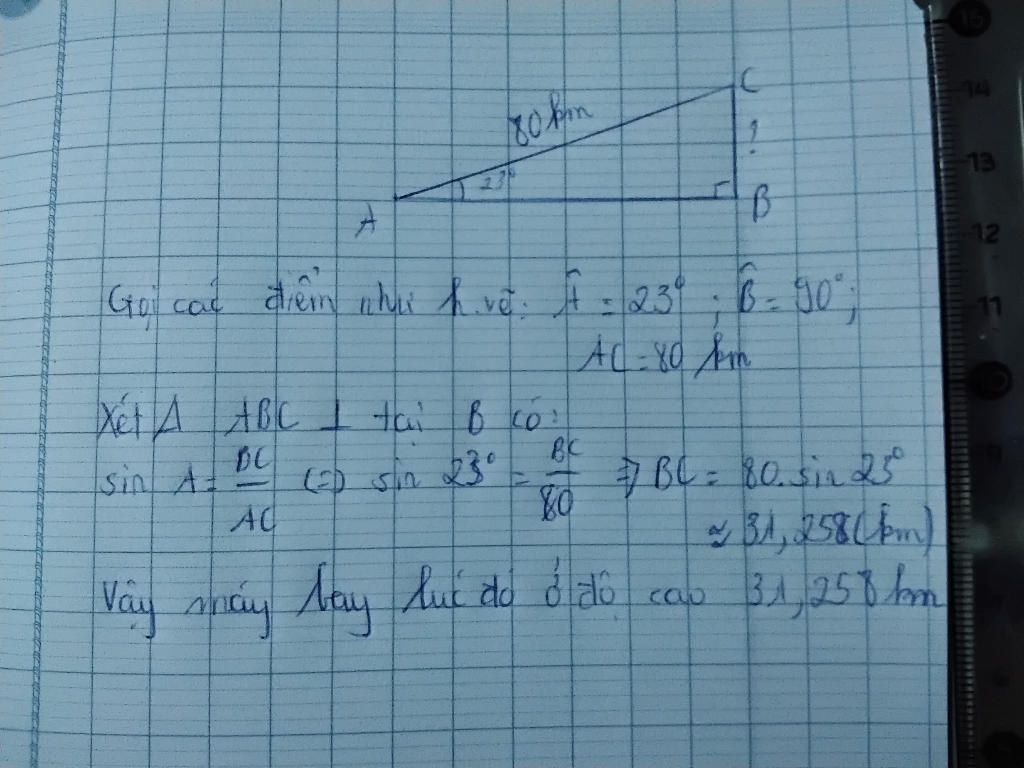 C
80 km
?
23°
A
B
Gọi các điểm như h.vẽ: Â = 23°; B̂ = 90°;
AC = 80 km
Xét Δ ABC ⊥ tại B có:
sin A = BC/AC (=) sin 23° = BC/80 => BC = 80.sin 23°
≈ 31,258(km)
Vậy máy bay lúc đó ở độ cao 31,258 km
15
14
13
12
11